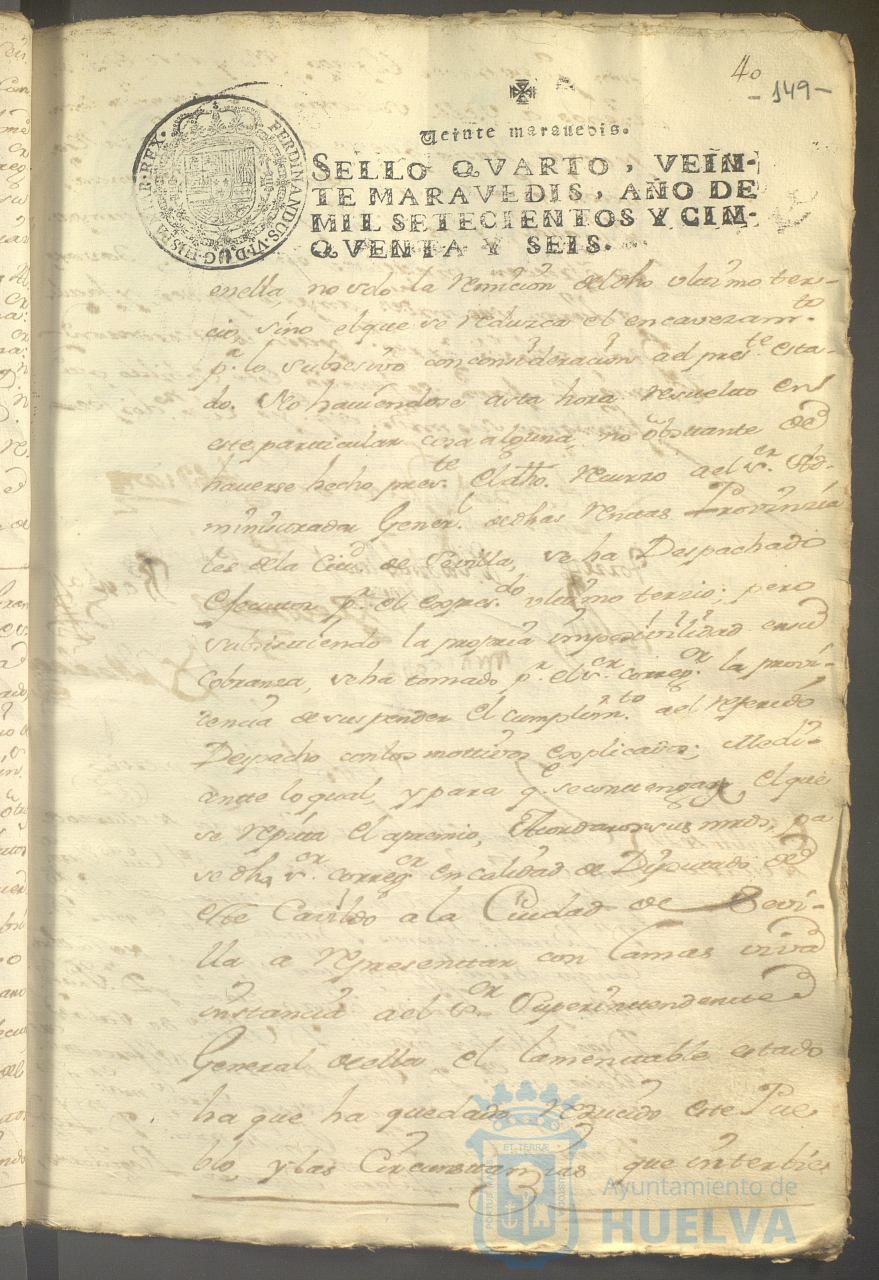 40
-149-
Veinte maravedis.
FERDINANDUS·VI·D·G·HISPANIAR·REX·
SELLO QVARTO, VEIN-
TE MARAVEDIS, AÑO DE
MIL SETECIENTOS Y CIN-
QVENTA Y SEIS.
en ella, no solo la remicion de dho ultimo ter-
cio, sino el que se reduzca el encavezamto.
pr. lo subcesivo con consideracion a el preste. esta-
do. No haviendose asta hora resuelto en
este particular cosa alguna, no obstante de
haverse hecho preste. el dho. recurzo a el sr. Ad-
ministrador Generl. de dhas rentas Provinzia
les de la Ciud de Sevilla, se ha Despachado
Executor pr. el expresdo. ultimo terzio; pero
subsistiendo la propria imposivilidad en su
cobranza, se ha tomado pr. el sr. correxr. la provi-
cencia de suspender el cumplimto. a el referido
Despacho con los mottivos explicados; Medi-
antte lo qual, y para qe. se conttenga, el que
se repita el apremio, Acordaron sus mrds, pa
se dho sr. corregr en calidad de Diputado de
este Cavildo a la Ciudad de Sevi-
lla a representar con la mas viva
instancia a el sr. Superinttendente
General de ella el lamentable estado
ha que ha quedado reducido este Pue
blo, y las Circunstancias que intertie
ET TERRÆ
Ayuntamiento de
HUELVA